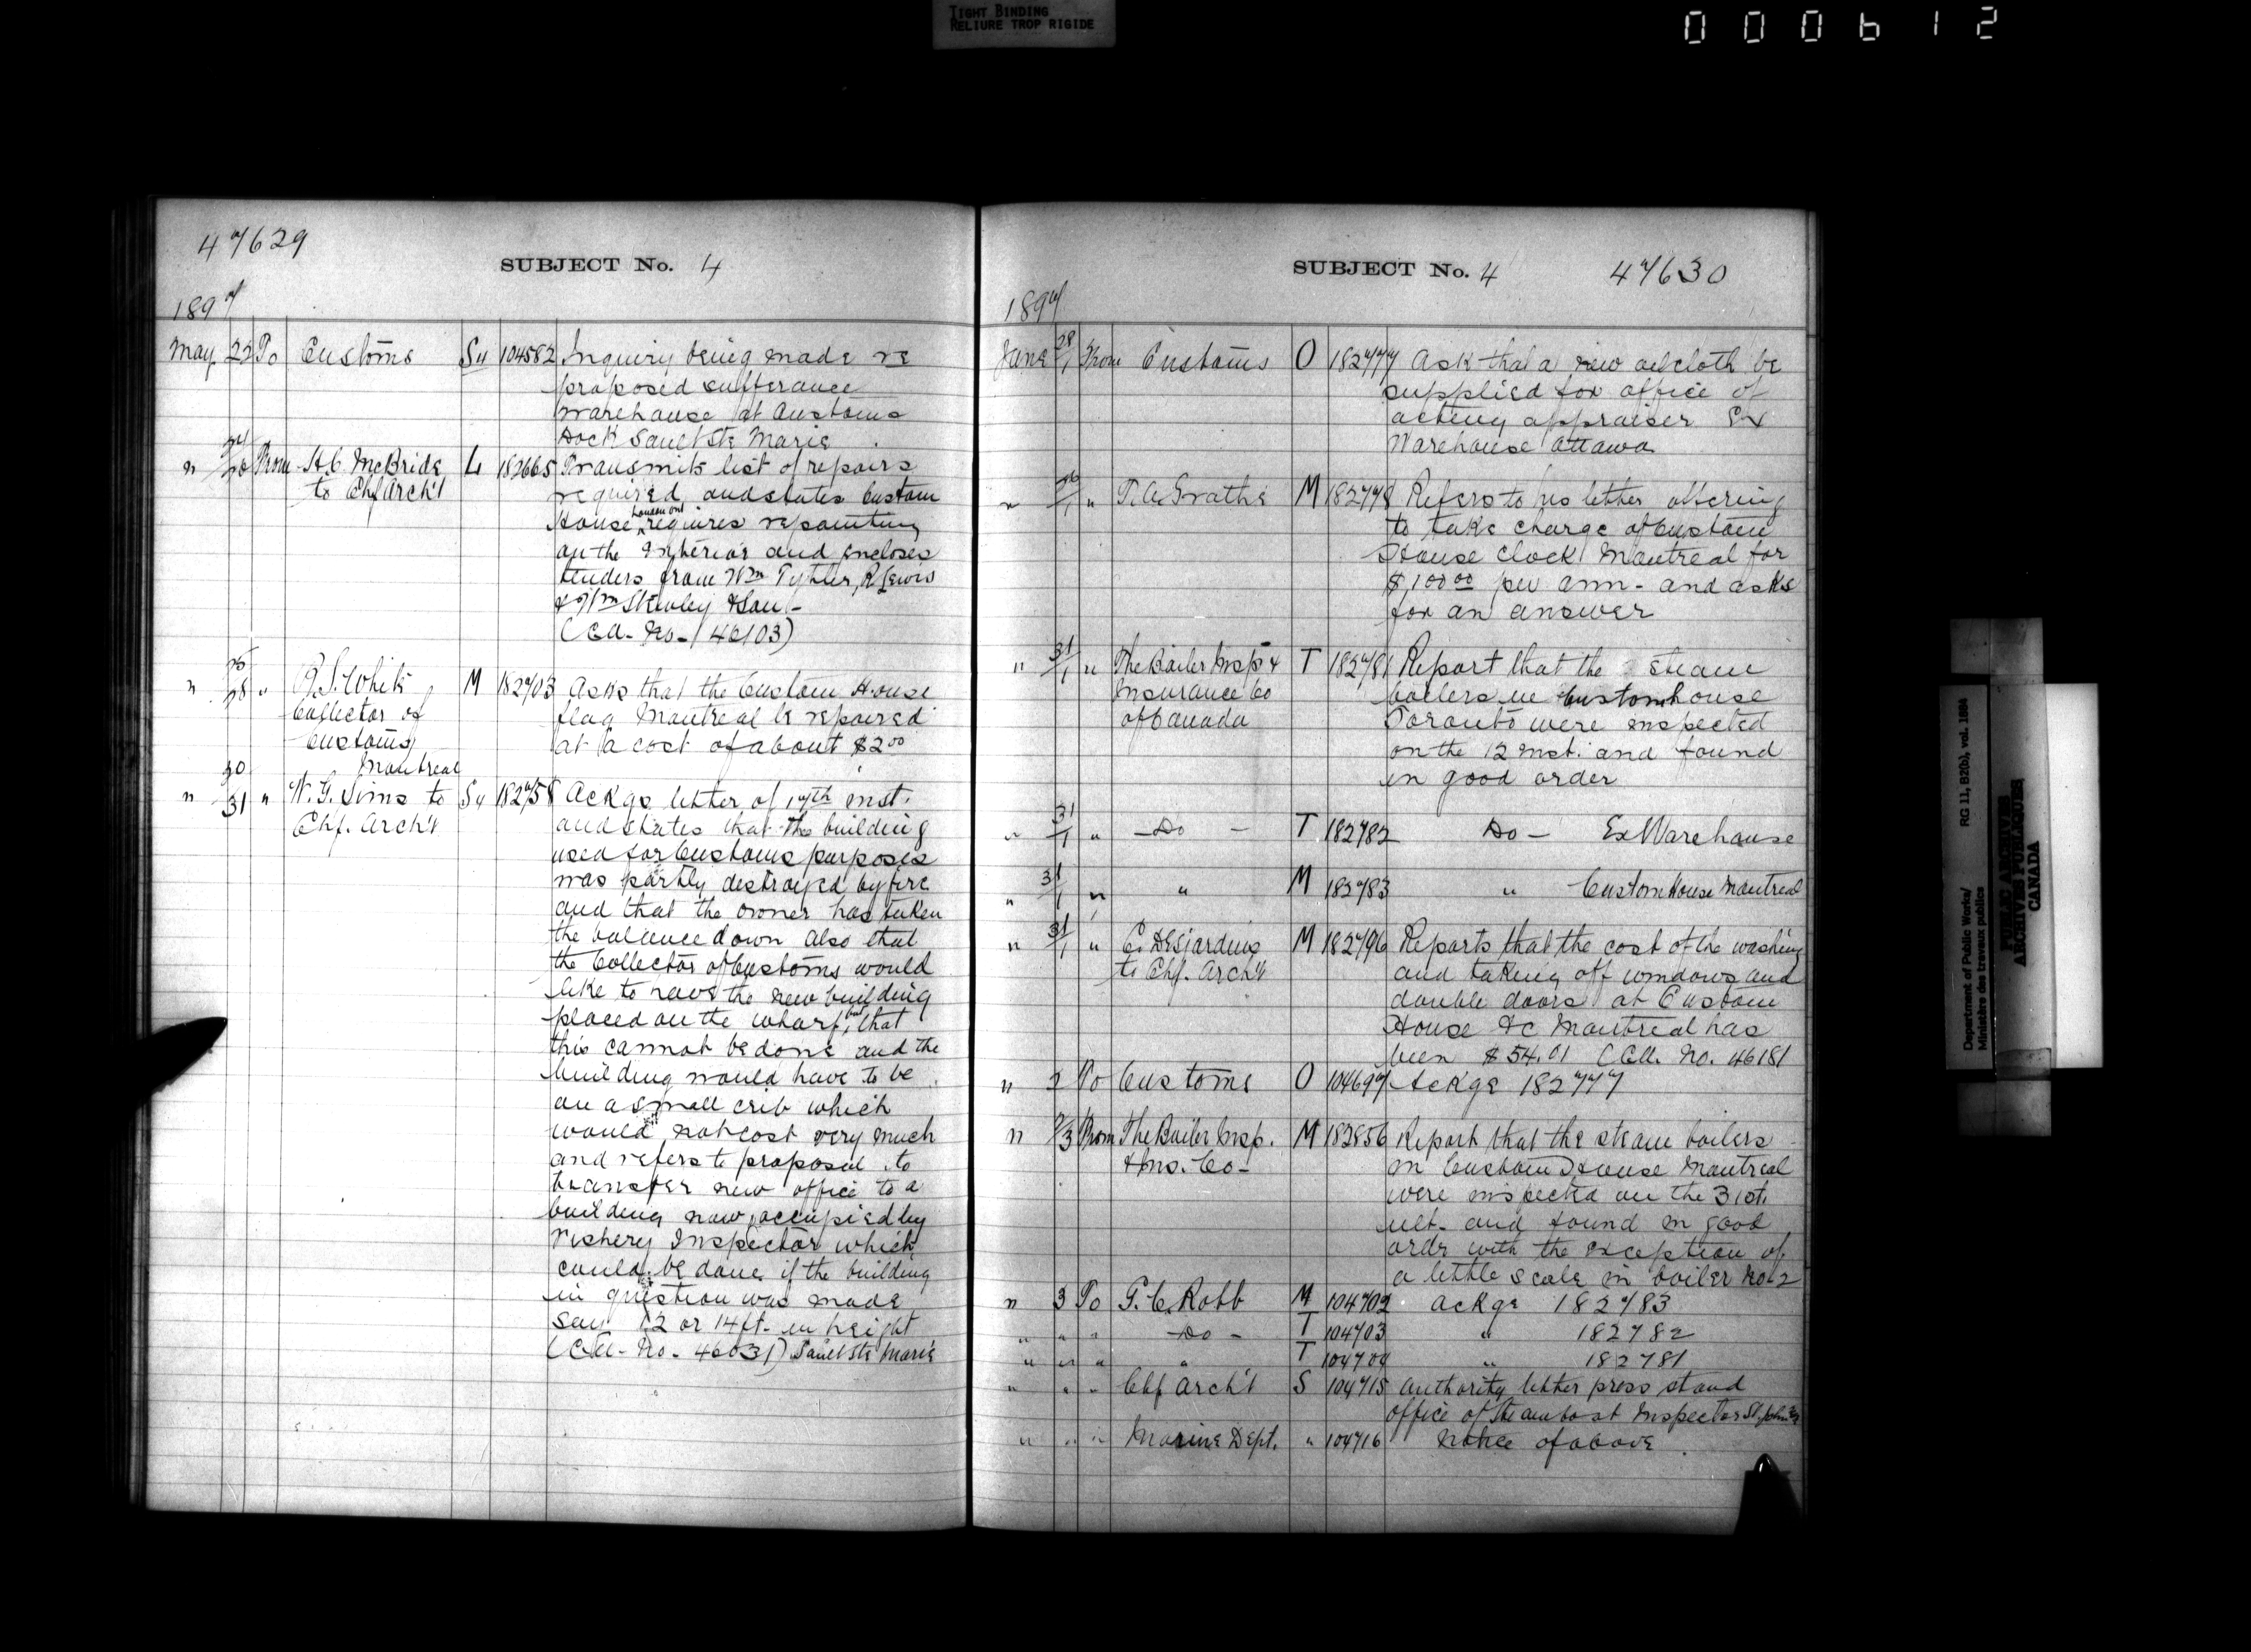 TIGHT BINDING
RELIURE TROP RIGIDE
000612
47629
SUBJECT No. 4
1897
May 22 To Customs Su 104582 Inquiry being made re
proposed sufferance
warehouse at Customs
Dock Sault Ste Marie
" 24/26 From H.C. McBride L 182665 Transmits list of repairs
to Chf Arch't required and states Custom
House London Ont requires repainting
on the Interior and encloses
tenders from Wm Tytler, R Lewis
& Wm & Son -
(C.A. No. 46103)
" 25/28 " R.S. White M 182703 Asks that the Custom House
Collector of flag Montreal be repaired
Customs at a cost of about $2.00
Montreal
" 30/31 " W. G. Sims to Su 182758 Ackgs letter of 17th inst.
Chf. Arch't and states that the building
used for Customs purposes
was partly destroyed by fire
and that the owner has taken
the balance down also that
the Collector of Customs would
like to have the new building
placed on the wharf, but that
this cannot be done and the
building would have to be
on a small crib which
would not cost very much
and refers to proposal to
transfer new office to a
building now occupied by
Fishery Inspector which
could be done if the building
in question was made
say 12 or 14 ft. in height
(C.A. No. 46031) Sault Ste Marie
SUBJECT No. 4 47630
1897
June 28/1 From Customs O 182777 Ask that a new oilcloth be
supplied for office of
acting appraiser Ex
Warehouse Ottawa
" 26/1 " T. A. Grothé M 182778 Refers to his letter offering
to take charge of Custom
House Clock Montreal for
$100.00 per ann - and asks
for an answer
" 31/1 " The Boiler Insp & T 182781 Report that the steam
Insurance Co boilers in Customhouse
of Canada Toronto were inspected
on the 12 inst. and found
in good order
" 31/1 " - Do - T 182782 Do - Ex Warehouse
" 31/1 " " M 182783 " Custom House Montreal
" 31/1 " C. Desjardins M 182796 Reports that the cost of the washing
to Chf. Arch't and taking off windows and
double doors at Custom
House &c Montreal has
been $54.01 (C.A. No. 46181
" 2 To Customs O 104697 Ackge 182777
" 2/3 From The Boiler Insp. M 182856 Report that the steam boilers
& Ins. Co - in Custom House Montreal
were inspected on the 31st.
ult. and found in good
order with the exception of
a little scale in boiler No 2
" 3 To G. C. Robb M 104702 Ackge 182783
" " " - Do - T 104703 " 182782
" " " " T 104704 " 182781
" " " Chf Arch't S 104715 Authority letter press stand
office of Steamboat Inspector St. John N.B.
" " " Marine Dept. " 104716 Notice of above
Department of Public Works/
Ministère des travaux publics
RG 11, B2(b), vol. 1884
PUBLIC ARCHIVES
ARCHIVES PUBLIQUES
CANADA